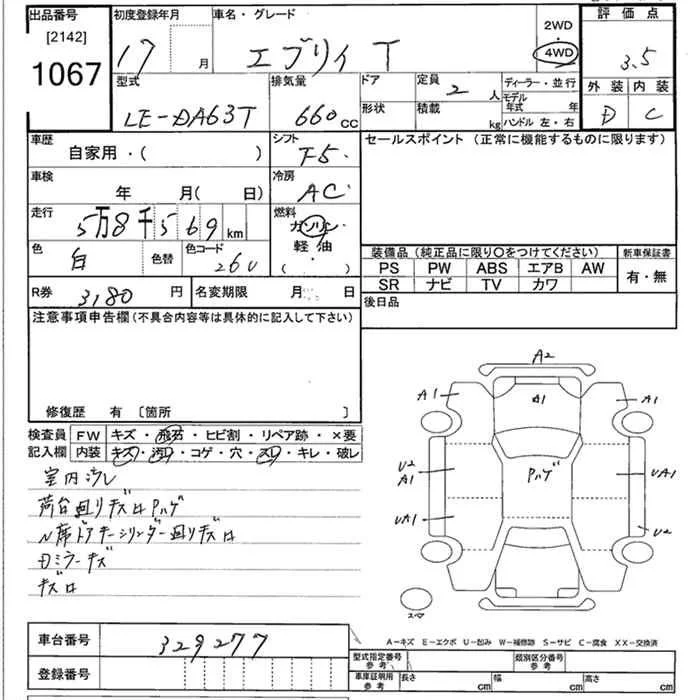 出品番号
[2142]
1067
初度登録年月
17 月
車名・グレード
エブリイ T
2WD
・
4WD
評価点
3.5
外装 内装
D C
型式
LE-DA63T
排気量
660 cc
ドア
形状
定員
2 人
積載
kg
ディーラー・並行
モデル年式 年
ハンドル 左・右
車歴
自家用・( )
シフト
F5・
セールスポイント (正常に機能するものに限ります)
車検
年 月( 日)
冷房
AC
走行
5万8千569km
燃料
ガソリン
軽油
( ・ )
色
白
色替
色コード
26U
装備品 (純正品に限り〇をつけてください)
PS PW ABS エアB AW
SR ナビ TV カワ
新車保証書
有・無
R券 3,180 円
名変期限 月 日
後日品
注意事項申告欄 (不具合内容等は具体的に記入して下さい)
修復歴 有 〔箇所 〕
検査員記入欄
FW キズ・飛石・ヒビ割・リペア跡・×要
内装 キズ・汚れ・コゲ・穴・スレ・キレ・破レ
室内汚レ
荷台廻りキズロPハゲ
N席ドアキーシリンダー廻りキズロ
Dミラーキズ
キズロ
A2
A1
A1
A1
U2
A1
Pハゲ
UA1
UA1
U2
スペア
A-キズ E-エクボ U-凹み W-補修跡 S-サビ C-腐食 XX-交換済
車台番号
329277
登録番号
型式指定番号
参考
類別区分番号
参考
車庫証明用
参考
長さ cm
幅 cm
高さ cm